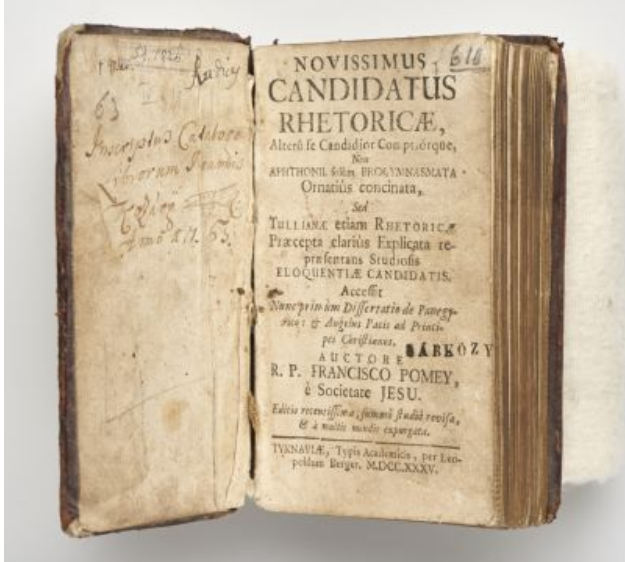 63
Inscriptus Catalogo
Librorum
Anno
63.
618
NOVISSIMUS
CANDIDATUS
RHETORICÆ,
Alterô se Candidior Comptiorque,
Non
APHTHONII solùm PROGYMNASMATA
Ornatiùs concinata,
Sed
TULLIANÆ etiam RHETORICÆ
Præcepta clariùs Explicata re-
præsentans Studiosis
ELOQUENTIÆ CANDIDATIS.
Accessit
Nunc primùm Dissertatio de Panegy-
& Angelus Pacis ad Princi-
pes Christianos.
AUCTORE
SÁRKÖZY
R. P. FRANCISCO POMEY,
è Societate JESU.
Editio recentissima, summô studiô revisa,
& à multis mendis expurgata.
TYRNAVIÆ, Typis Academicis, per Leo-
poldum Berger. M.DCC.XXXV.